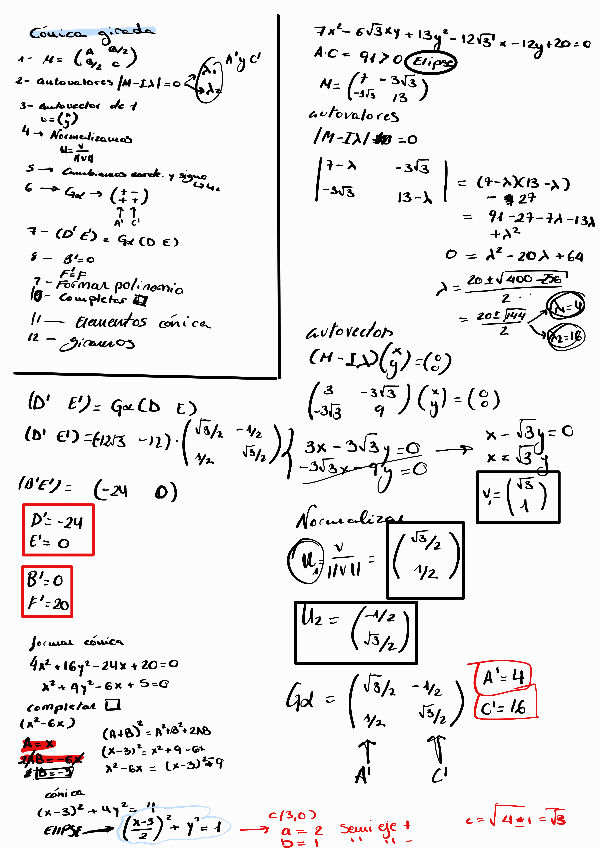 Cónica girada
1- M = (A B/2
B/2 C)
2- autovalores |M-Iλ|=0 λ1 λ2 A' y C'
3- Autovector de 1
v=(x y)
4 → Normalizamos
u = v/||v||
5 → Cambiamos coord. y signo → u2
6 → Gα → (+ -
+ +)
↑ ↑
A' C'
7 - (D' E') = Gα (D E)
8 - B'=0
F'=F
9 - Formar polinomio
10 - Completar □
11 — Elementos cónica
12 — giramos
7x² - 6√3xy + 13y² - 12√3 x - 12y + 20 = 0
A·C = 91 > 0 Elipse
M = (7 -3√3
-3√3 13)
autovalores
|M-Iλ| = 0
|7-λ -3√3
-3√3 13-λ| = (7-λ)(13-λ)
- 27
= 91 - 27 - 7λ - 13λ
+ λ²
0 = λ² - 20λ + 64
λ = 20 ± √400-256 / 2
= 20 ± √144 / 2 λ1=4
λ2=16
autovectos
(M-Iλ)(x y) = (0 0)
(3 -3√3
-3√3 9)(x y) = (0 0)
3x - 3√3y = 0 → x - √3y = 0
-3√3x - 9y = 0 x = √3 y
v1 = (√3
1)
Normalizar
u1 = v/||v|| = (√3/2
1/2)
U2 = (-1/2
√3/2)
Gα = (√3/2 -1/2
1/2 √3/2)
↑ ↑
A' C'
A' = 4
C' = 16
(D' E') = Gα (D E)
(D' E') = (-12√3 -12) · (√3/2 -1/2
1/2 √3/2)
(D' E') = (-24 0)
D' = -24
E' = 0
B' = 0
F' = 20
formar cónica
4x² + 16y² - 24x + 20 = 0
x² + 4y² - 6x + 5 = 0
completar □
(x² - 6x)
A = x
2AB = 6x
B = -3
(A+B)² = A² + B² + 2AB
(x-3)² = x² + 9 - 6x
x² - 6x = (x-3)² - 9
cónica
(x-3)² + 4y² = 4
ELIPSE → (x-3 / 2)² + y² = 1 → C(3,0)
a = 2 semi eje +
b = 1 '' '' -
c = √4-1 = √3